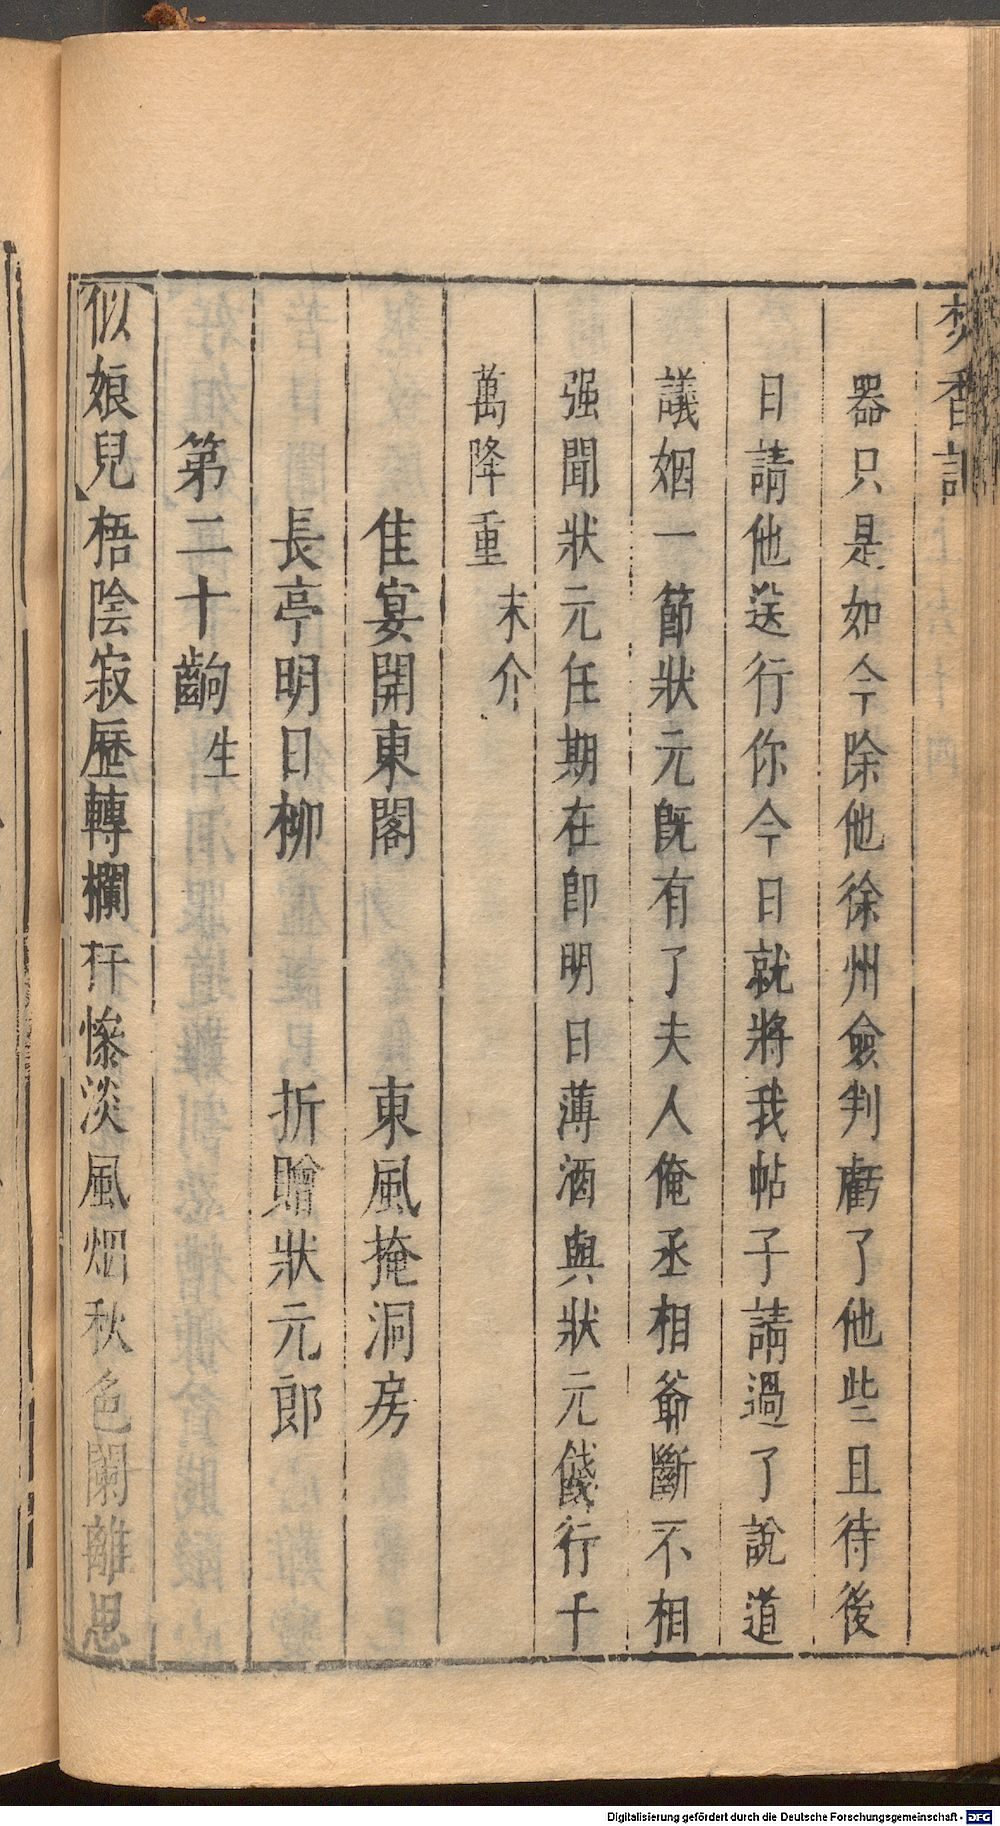 焚香記
器只是如今除他徐州僉判虧了他些且待後
日請他送行你今日就將我帖子請過了說道
議姻一節狀元既有了夫人俺丞相爺斷不相
强聞狀元任期在卽明日薄酒與狀元餞行千
萬降重 末介
隹宴開東閣 東風掩洞房
長亭明日柳 折贈狀元郎
第二十齣 生
似娘兒 梧陰寂歷轉欄杆慘淡風烟秋色闌離思
Digitalisierung gefördert durch die Deutsche Forschungsgemeinschaft - DFG